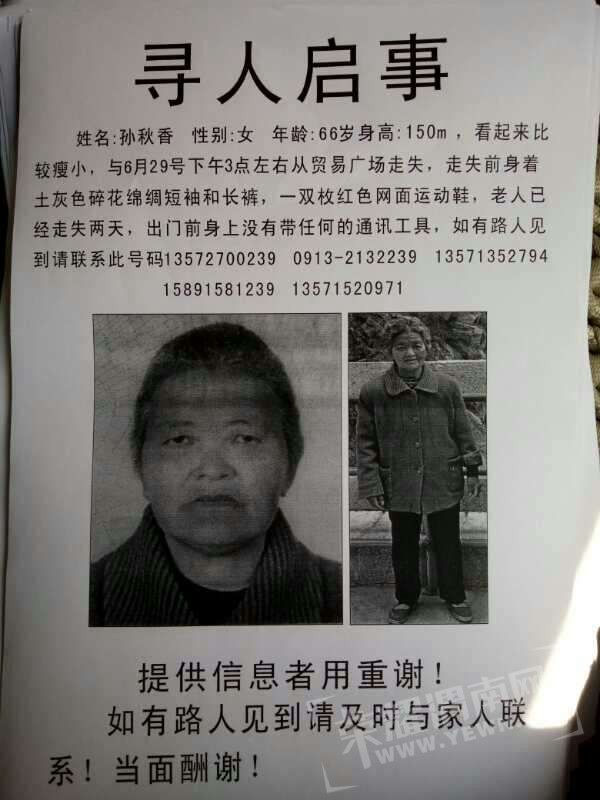 寻人启事
姓名:孙秋香 性别:女 年龄:66岁身高:150m，看起来比
较瘦小，与6月29号下午3点左右从贸易广场走失，走失前身着
土灰色碎花绵绸短袖和长裤，一双枚红色网面运动鞋，老人已
经走失两天，出门前身上没有带任何的通讯工具，如有路人见
到请联系此号码13572700239 0913-2132239 13571352794
15891581239 13571520971
提供信息者用重谢！
如有路人见到请及时与家人联
系！当面酬谢！